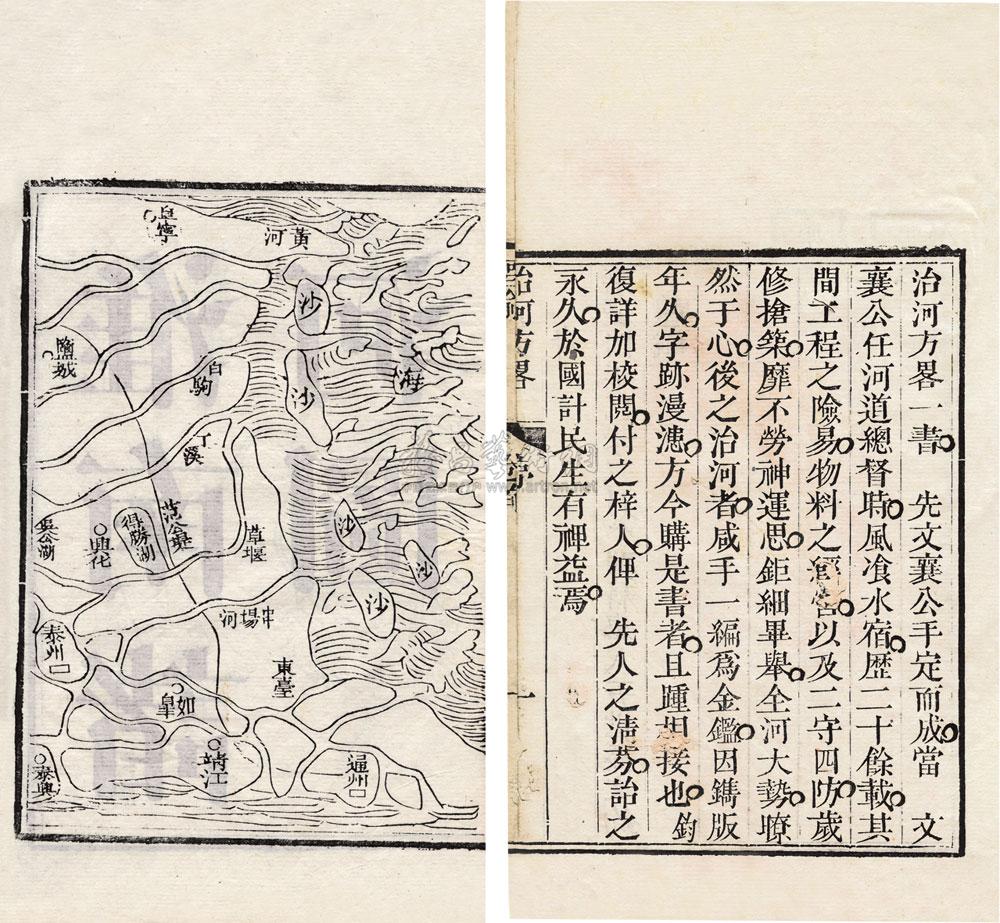 治河方畧一書　先文襄公手定而成當　文
襄公任河道總督時風飡水宿歴二十餘載其
間工程之險易物料之以及二守四防歲
修搶築靡不勞神運思鉅細畢舉全河大勢瞭
然于心後之治河者咸手一編爲金鑑因鐫版
年久字跡漫漶方今購是書者且踵相接也鈞
復詳加校閱付之梓人俾　先人之淸芬詒之
永久於國計民生有裨益焉
治河方畧
序
一
阜寧
黃河
沙
鹽城
白駒
沙
海
丁溪
范公堤
草堰
沙
得勝湖
興化
吳公湖
沙
沙
串場河
泰州
東臺
如臯
靖江
通州
泰興